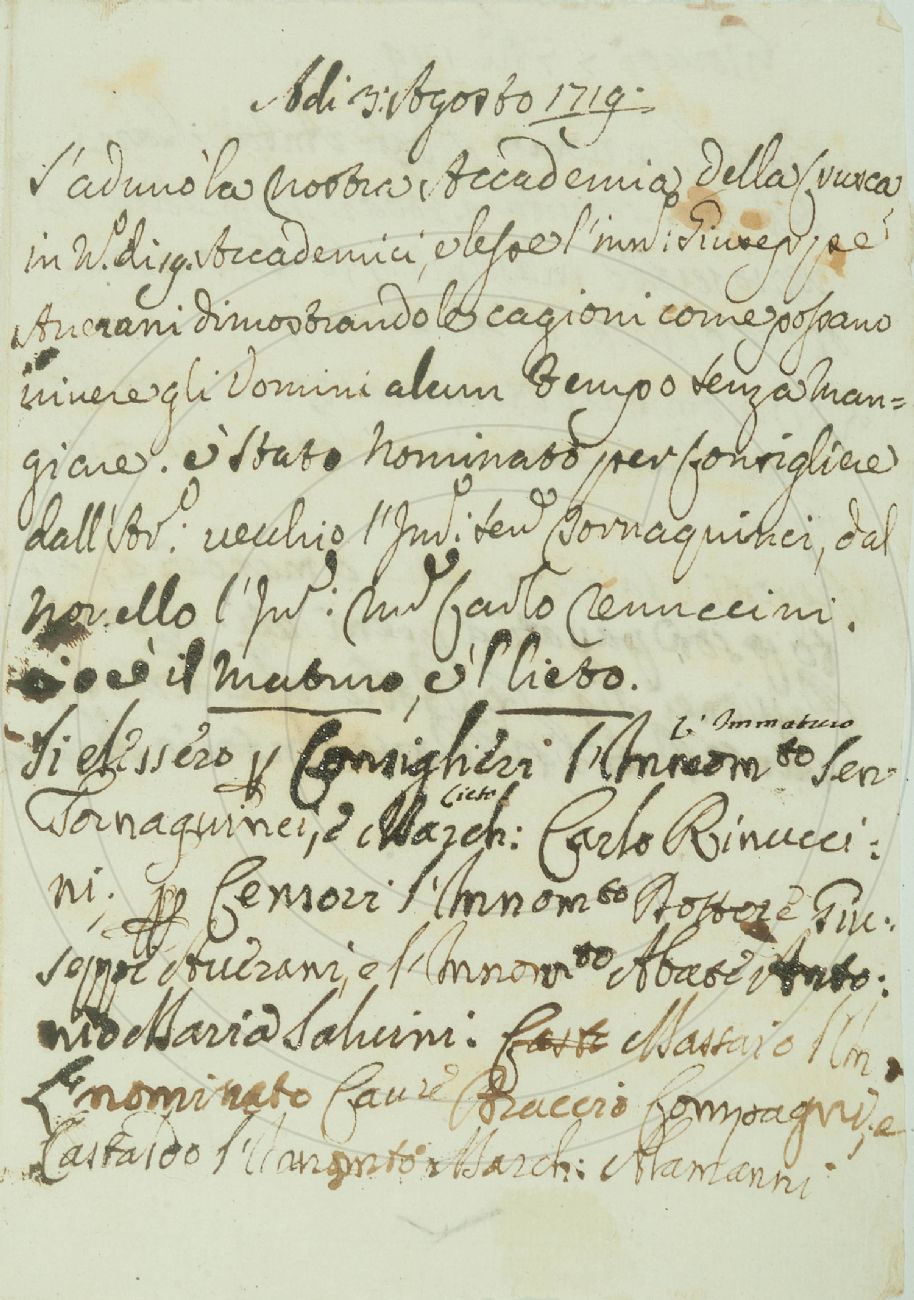 Adi 3: Agosto 1719.
S'adunò la nostra Accademia della Crusca
in N.º di 19. Accademici, e lesse l'inn.º: Giuseppe
Auerani dimostrando le cagioni come possano
uiuere gli Uomini alcun tempo senza Man=
giare. è stato Nominato per Consigliere
dall'Ar.º: uecchio l'Inn.º: Sen.e Tornaquinci, dal
Novello l'Inn.º: Carlo Renuccini.
cioè il Maturo, e'l lieto.
L'Immaturo
Si elessero p Consiglieri l'Innom.to Sen.
Lieto
Tornaquinci, e March: Carlo Rinucci:
ni; pp Censori l'Innom.to Dottore Giu:
seppe Auerani, e l'Innom.to Abate Anto:
nio Maria Saluini: Cast Massaio l'In
nominato Cau.re Braccio Compagni, e
Castaldo l'Innom.to March: Alamanni